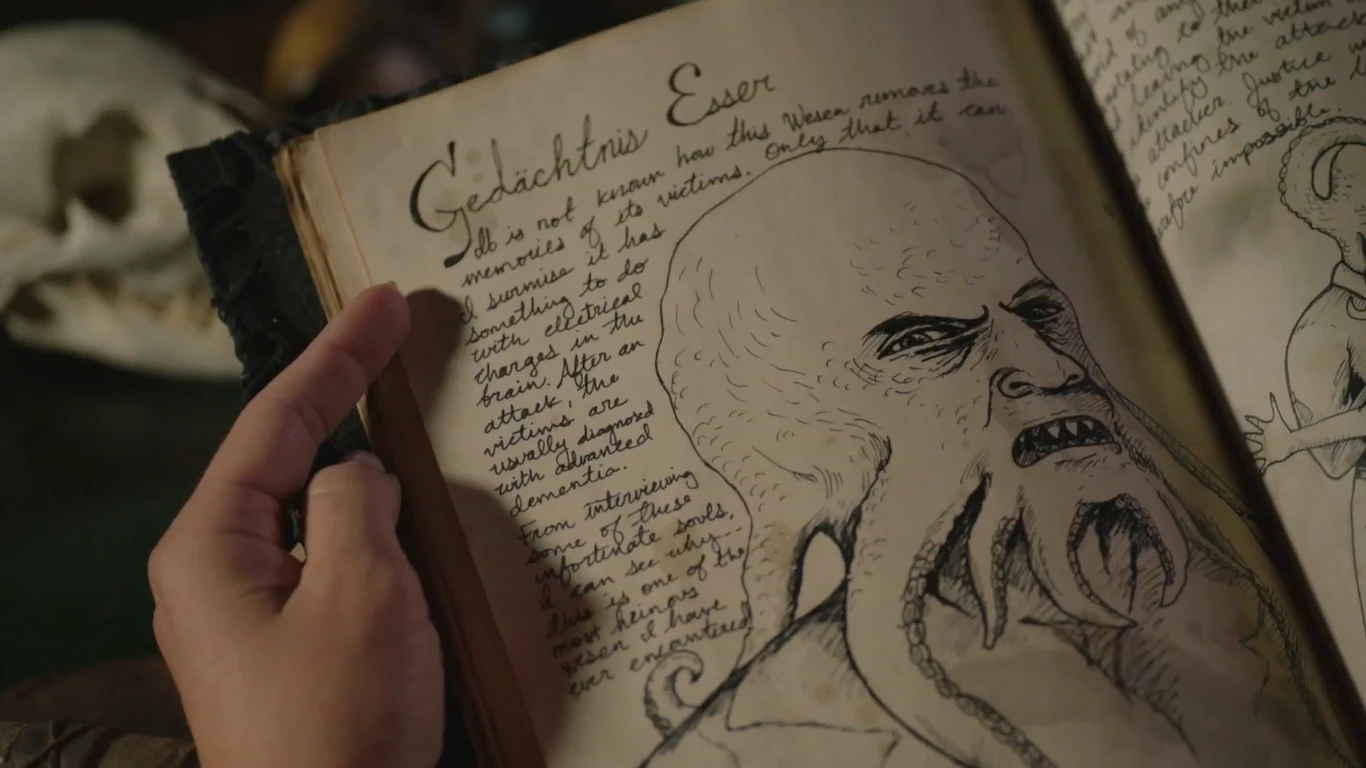 Gedächtnis Esser
It is not known how this Wesen removes the
memories of its victims. Only that it can
I surmise it has
something to do
with electrical
charges in the
brain. After an
attack, the
victims are
usually diagnosed
with advanced
dementia.
From interviewing
some of these
unfortunate souls,
I can see why--
this is one of the
most heinous
wesen I have
ever encountered
of any
to the victim
relating to
leaving the
identify the attack
attacker. Justice
confines of the
impossible.